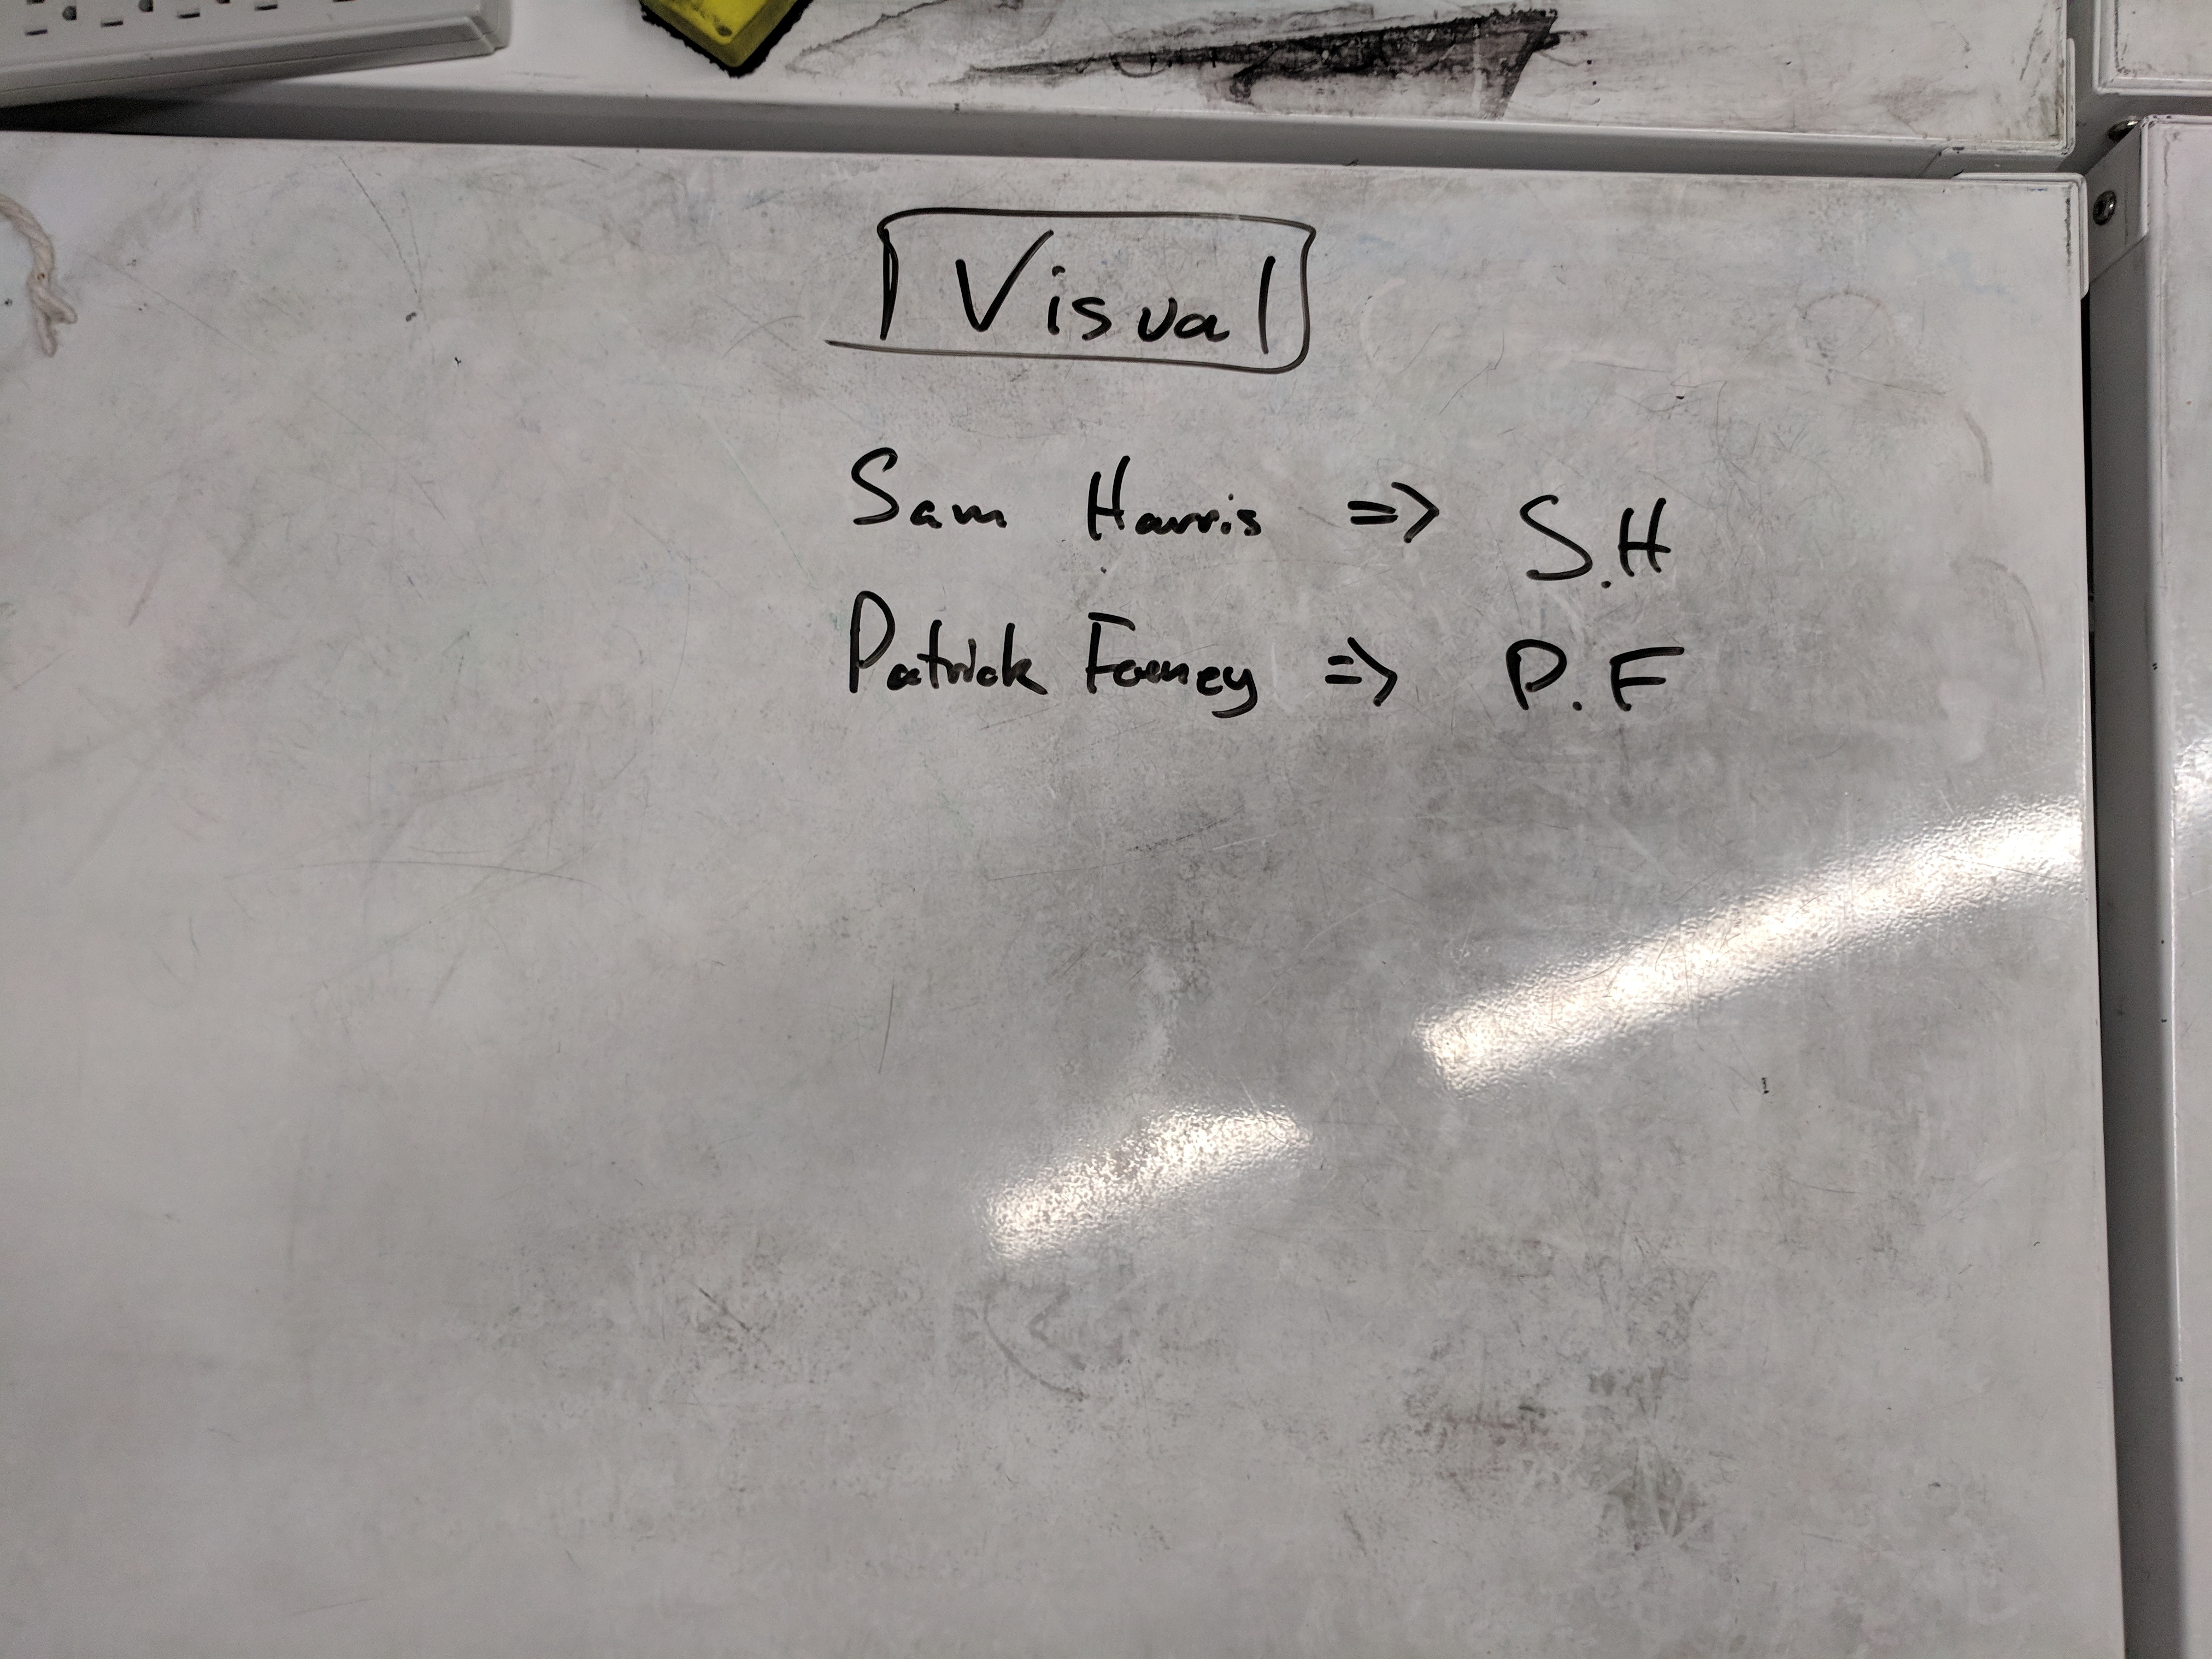 Visual
Sam Harris => S.H
Patrick => P.F